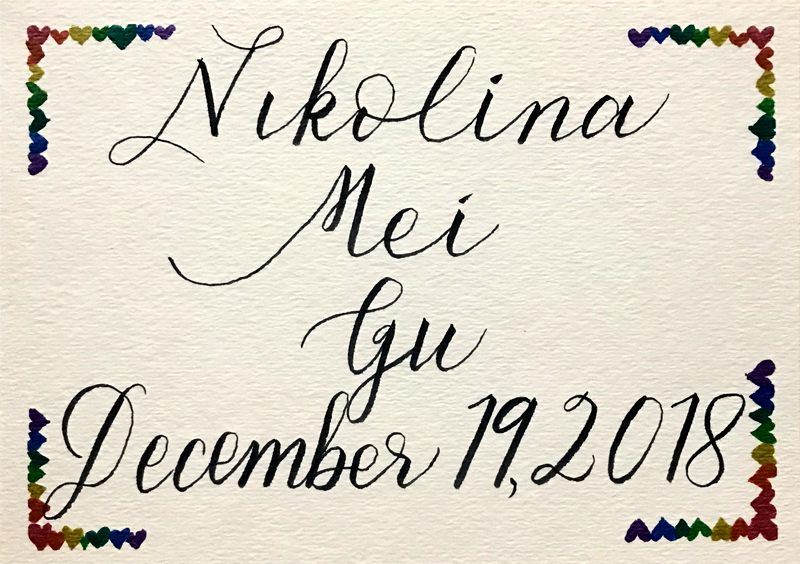 Nikolina
Mei
Gu
December 19, 2018